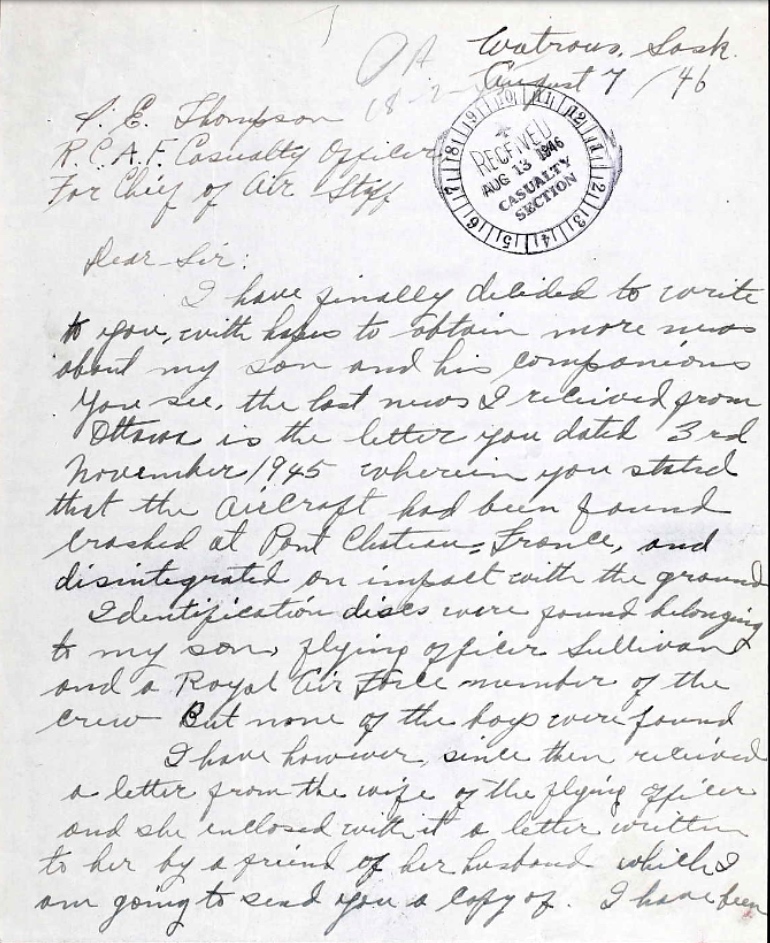 Watrous, Sask.
August 7 / 46
E. Thompson
R.C.A.F. Casualty Officer
For Chief of Air Staff
RECEIVED
AUG 13 1946
CASUALTY
SECTION
Dear Sir:
I have finally decided to write
to you, with hopes to obtain more news
about my son and his companions
You see, the last news I received from
Ottawa is the letter you dated 3rd
November 1945 wherein you stated
that the AirCraft had been found
crashed at Pont Chateau, France, and
disintegrated on impact with the ground
Identification discs were found belonging
to my son, flying officer Sullivan
and a Royal Air Force member of the
crew But none of the boys were found
I have however, since then received
a letter from the wife of the flying officer
and she enclosed with it a letter written
to her by a friend of her husband which I
am going to send you a copy of. I have been